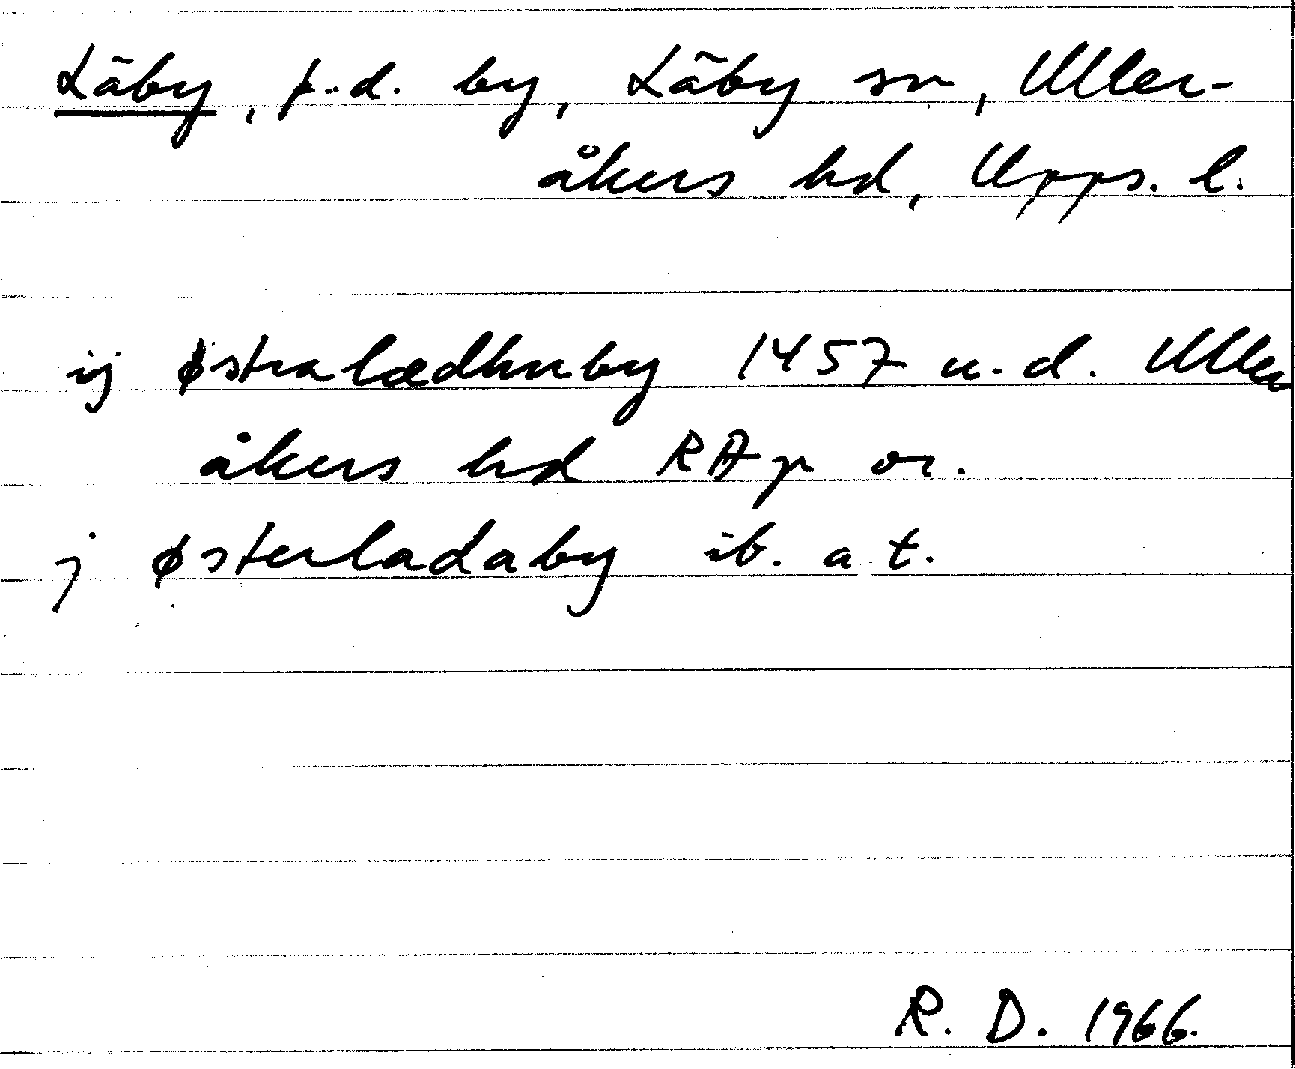 Läby, f.d. by, Läby sn, Uller-
åkers hd, Upps. l.
ij østralædhuby 1457 u.d. Uller
åkers hd RAp or.
j østerladaby ib. a t.
R. D. 1966.